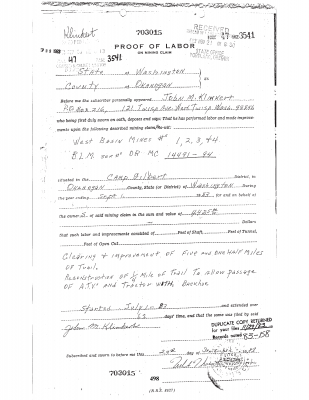 Klinkert
703015
RECEIVED
VOL 47 PAGE 3541
47 3541
PROOF OF LABOR
ON MINING CLAIM
State of Washington
County of Okanogan
ss
Before me the subscriber personally appeared John M. Klinkert
P.O. Box 216, 121 Twisp Ave. West, Twisp Wash. 98856
who being first duly sworn on oath, deposes and says: That he performed labor and made improve-
ments upon the following described mining claim/to-wit:
West Basin Mines # 1, 2, 3, +4
B.L.M. OR MC 14491-94
situated in the Camp Gilbert District, in
Okanogan County, State (or District) of Washington. During
the year ending Sept 1, 1983 for and on behalf of
the owner S of said mining claim in the sum and value of
Dollars
That such labor and improvements consisted of Feet of Shaft Feet of Tunnel,
Feet of Open Cut
Clearing + improvement of Five and one Half Miles
of Trail.
Reconstruction of 1/4 Mile of Trail To allow passage
of A.T.Vs and Tractor with Backhoe
Started July 1, 83 and attended
days time, and that the same was filed by said
John M. Klinkert
DUPLICATE COPY RETURNED
for your files
Records noted 83-158
Subscribed and sworn to before me this day of
703015
498